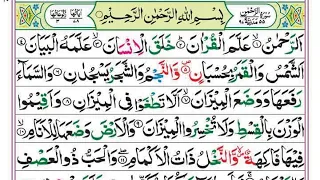 بِسْمِ اللهِ الرَّحْمٰنِ الرَّحِيْمِ
اَلرَّحْمٰنُ عَلَّمَ الْقُرْاٰنَ خَلَقَ الْاِنْسَانَ عَلَّمَهُ الْبَيَانَ
اَلشَّمْسُ وَالْقَمَرُ بِحُسْبَانٍ وَّالنَّجْمُ وَالشَّجَرُ يَسْجُدٰنِ وَالسَّمَآءَ
رَفَعَهَا وَوَضَعَ الْمِيْزَانَ اَلَّا تَطْغَوْا فِي الْمِيْزَانِ وَاَقِيْمُوا
الْوَزْنَ بِالْقِسْطِ وَلَا تُخْسِرُوا الْمِيْزَانَ وَالْاَرْضَ وَضَعَهَا لِلْاَنَامِ
فِيْهَا فَاكِهَةٌ وَّالنَّخْلُ ذَاتُ الْاَكْمَامِ وَالْحَبُّ ذُو الْعَصْفِ